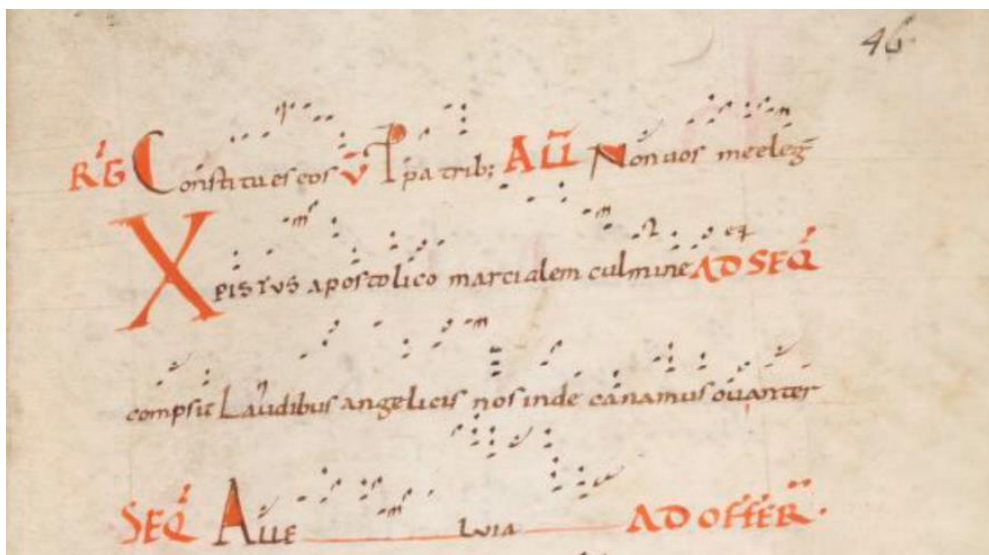 46
RG Constitues eos V P patrib; ALL Non vos me eleg
XPISTVS apostolico marcialem culmine AD SEQ
compsit Laudibus angelicis nos inde canamus ovanter
SEQ ALLE LVIA AD OFFER.